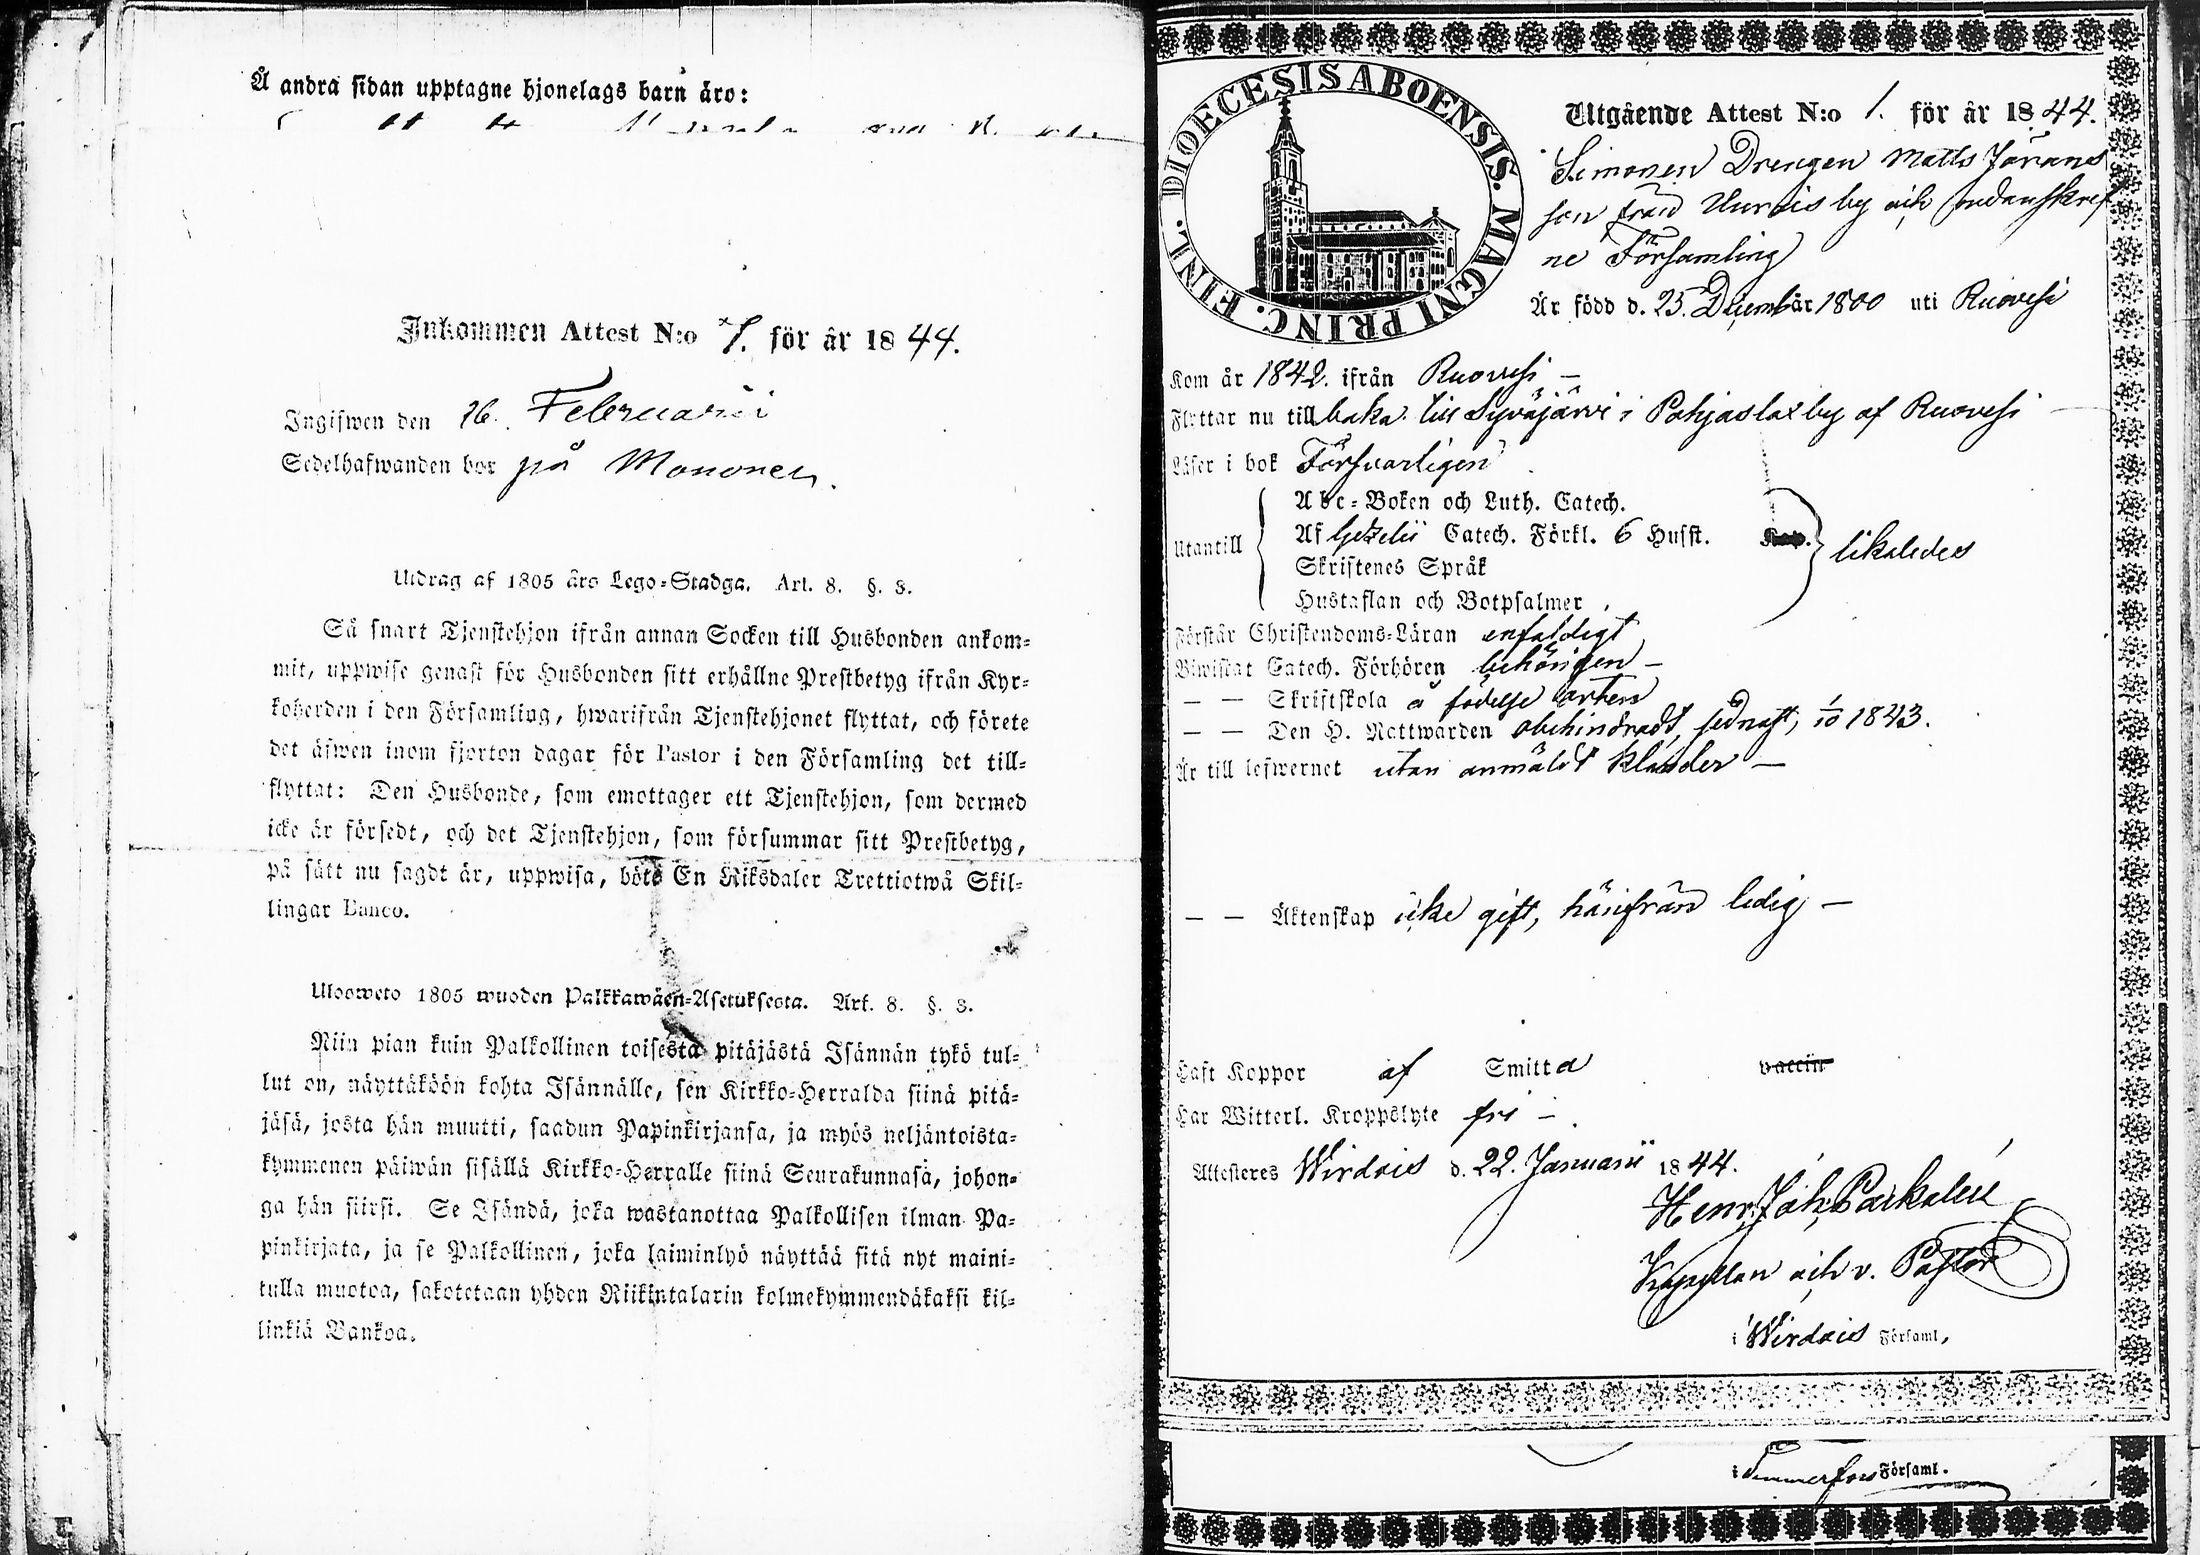 Å andra sidan upptagne hjonelags barn äro:
Inkommen Attest N:o 7. för år 1844.
Ingifwen den 16. Februarii
Sedelhafwanden bor på Mononen.
Utdrag af 1805 års Lego-Stadga. Art. 8. §. 3.
Så snart Tjenstehjon ifrån annan Socken till Husbonden ankom-
mit, uppwise genast för Husbonden sitt erhållne Prestbetyg ifrån Kyr-
koherden i den Församling, hwarifrån Tjenstehjonet flyttat, och förete
det äfwen inom fjorton dagar för Pastor i den Församling det till-
flyttat: Den Husbonde, som emottager ett Tjenstehjon, som dermed
icke är försedt, och det Tjenstehjon, som försummar sitt Prestbetyg,
på sätt nu sagdt är, uppwisa, böte En Riksdaler Trettiotwå Skil-
lingar Banco.
Ulosweto 1805 wuoden Palkkawäen-Asetuksesta. Art. 8. §. 3.
Niin pian kuin Palkollinen toisesta pitäjästä Isännän tykö tul-
lut on, näyttäköön kohta Isännälle, sen Kirkko-Herralda siinä pitä-
jäsä, josta hän muutti, saadun Papinkirjansa, ja myös neljäntoista-
kymmenen päiwän sisällä Kirkko-Herralle siinä Seurakunnasa, johon-
ga hän siirsi. Se Isändä, joka wastanottaa Palkollisen ilman Pa-
pinkirjata, ja se Palkollinen, joka laiminlyö näyttää sitä nyt maini-
tulla muotoa, sakotetaan yhden Riikintalarin kolmekymmendäkaksi kil-
linkiä Bankoa.
DIOECESIS ABOENSIS. MAGNI PRINC. FINL.
Utgående Attest N:o 1. för år 1844.
Simonen Drengen Matts Jörans
son från Uurais by och ofvanskref
ne Församling
Är född d. 25. Decemb år 1800 uti Ruovesi
Kom år 1842. ifrån Ruovesi —
Flyttar nu till baka till Syväjärvi i Pohjaslax by af Ruovesi —
Läser i bok Försvarligen
Utantill
Abc-Boken och Luth. Catech.
Af Gezelii Catech. Förkl. 6 Husst. Kap.
Skriftenes Språk
Hustaflan och Botpsalmer
likaledes
Förstår Christendoms-Läran enfaldigt
Biwistat Catech. Förhören behörigen —
— — Skriftskola å födelse orten
— — Den H. Nattwarden obehindradt, sednast, 1/10 1843.
Är till lefwernet utan anmäldt klander —
— — Äktenskap icke gift, härifrån ledig —
Haft Koppor af Smitta vaccin
Har Witterl. Kroppslyte fri —
Attesteres Wirdois d. 22. Januarii 1844.
Henr. Joh.
Kapellan och v. Pastor
i Wirdois Församl.
i Tammerfors Församl.